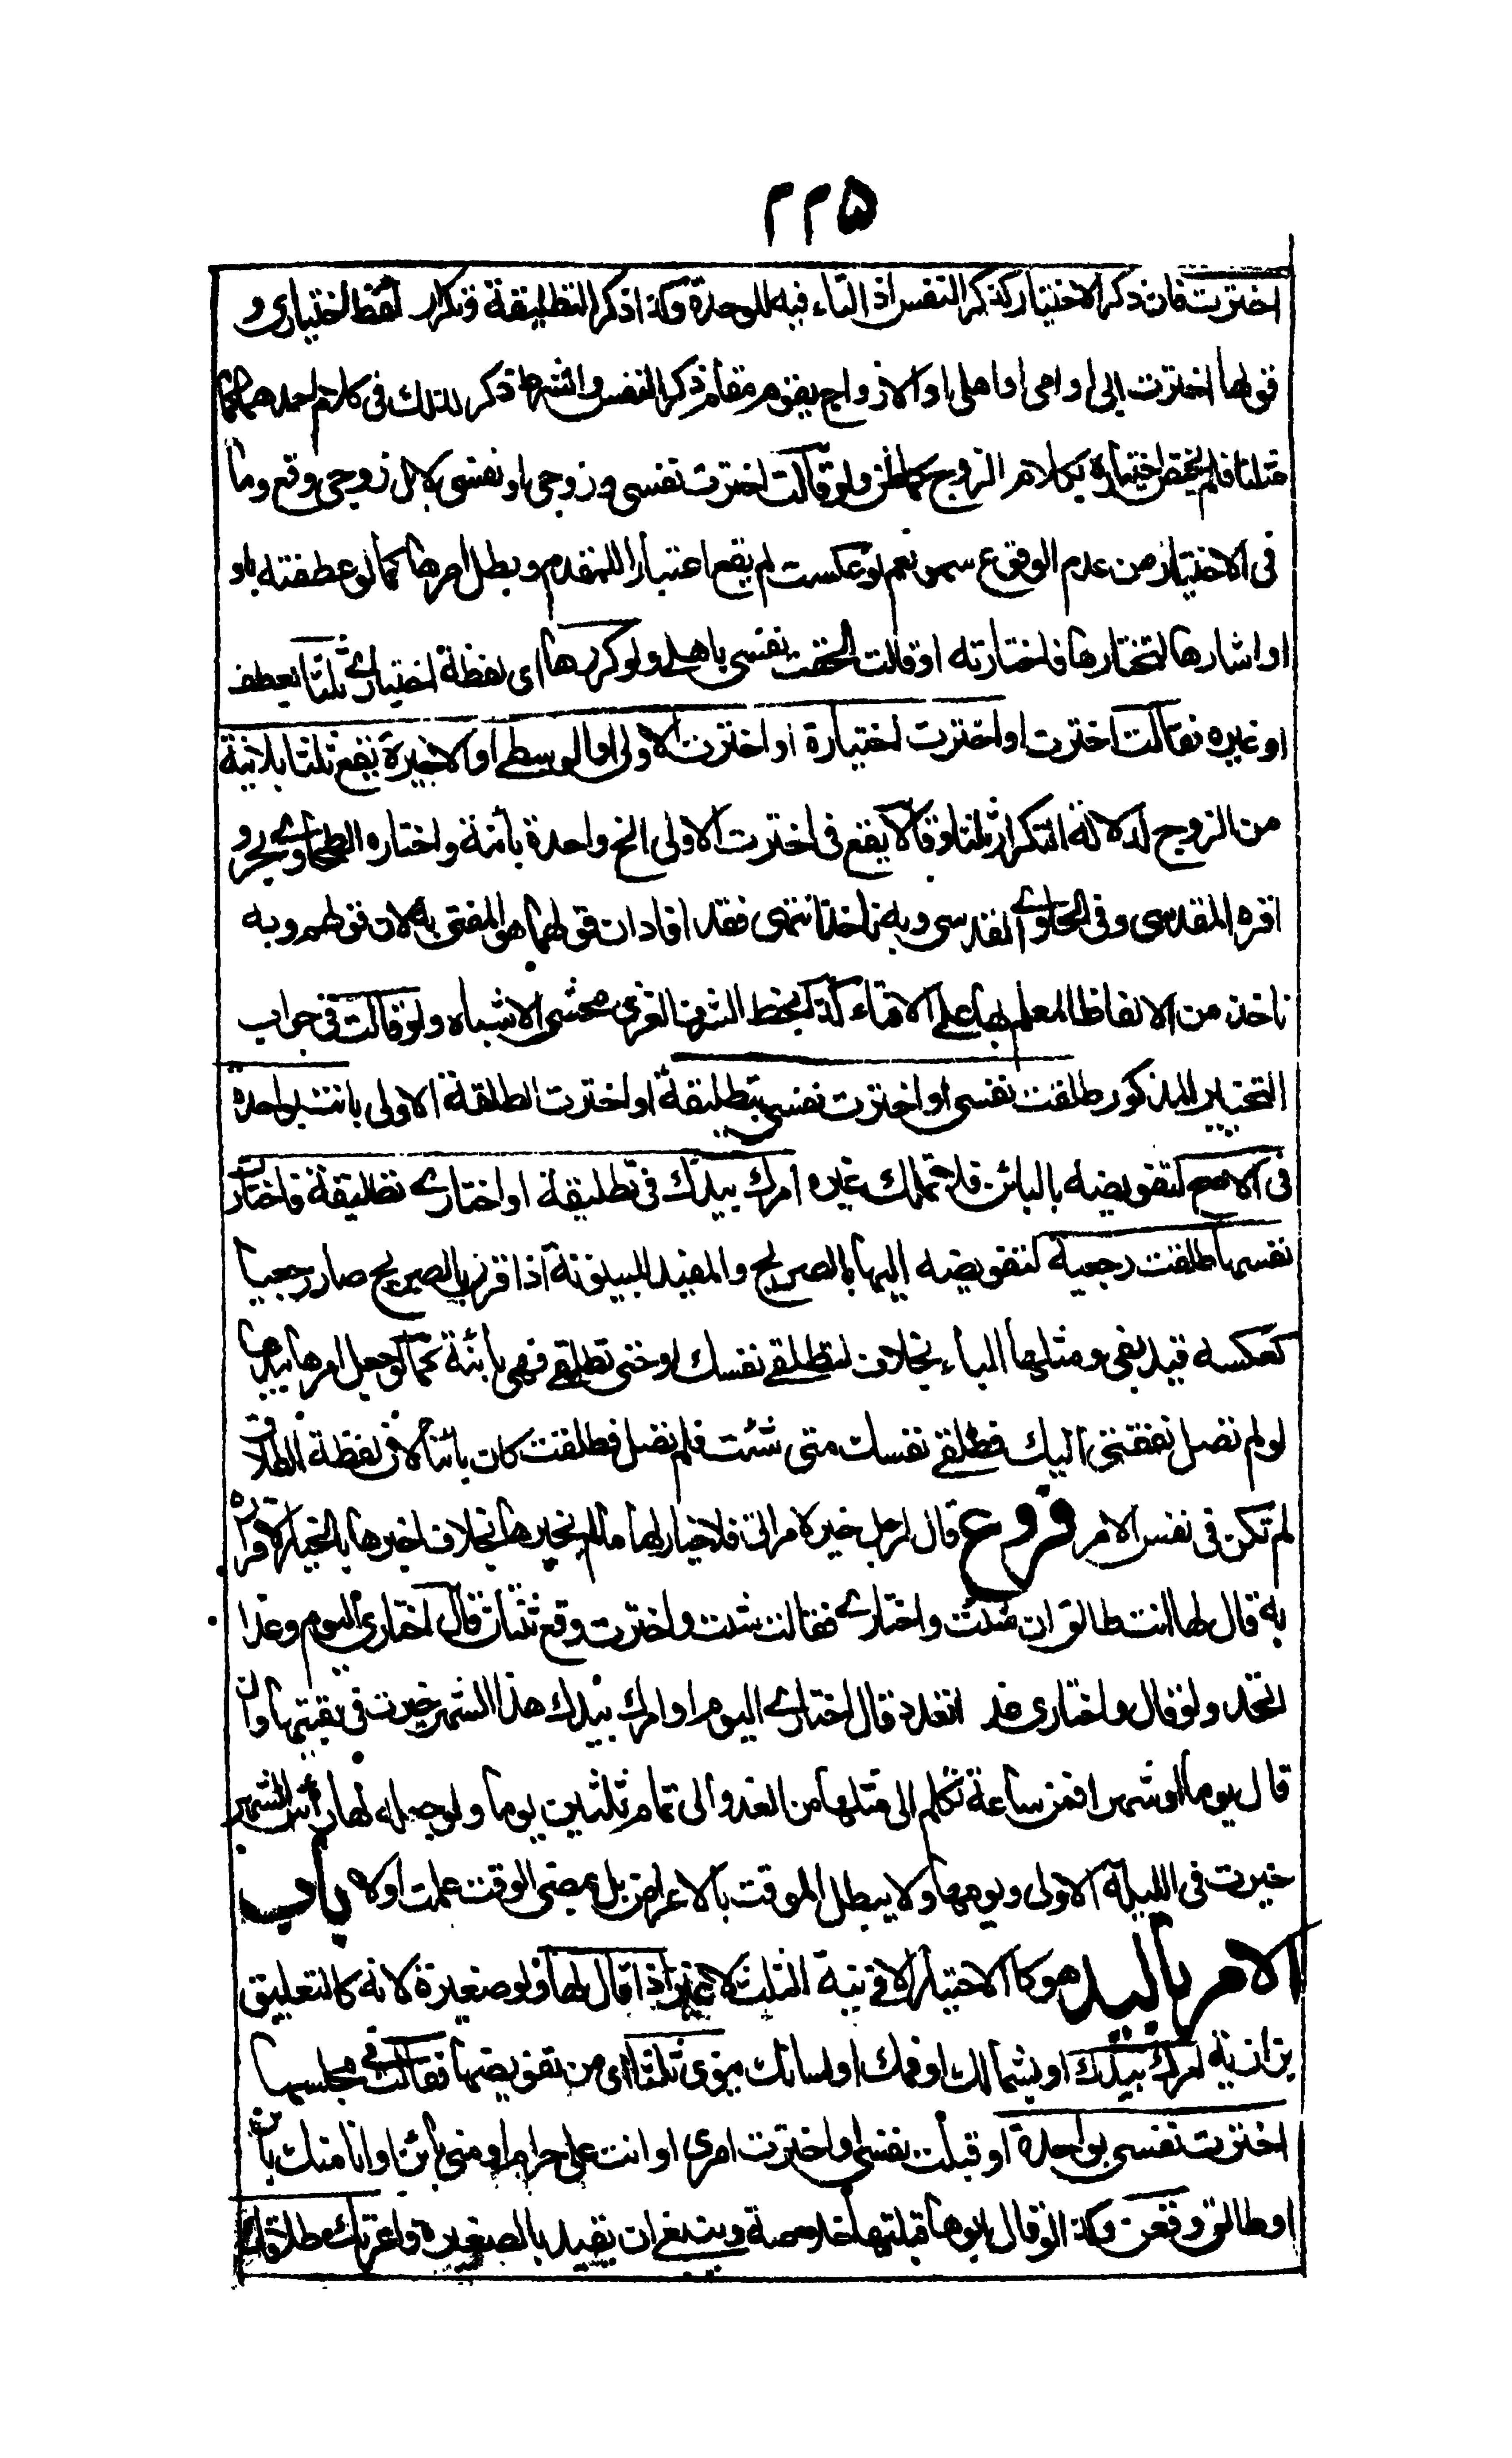 ٢٢٥
اخترت فان ذكر الاختيار كذكر النفس اذ التاء فيه للوحدة وكذا ذكر التطليقة وتكرار لفظ اختياري و
قولها اخترت ابي او امي او اهلي او الازواج يقوم مقام ذكر النفس والشرط ذكر ذلك في كلام احدهما كما
مثلنا فلم يختص اختياره بكلام الزوج كما ظن ولو قالت اخترت نفسي وزوجي او نفسي لا بل زوجي وقع وما
في الاختيار من عدم الوقوع سهو نعم لو عكست لم يقع اعتبارا للمقدم وبطل امرها كما لو عطفته باو
او اشارها لتختارها فاختارته او قالت الحقت نفسي باهلي ولو كررها اي لفظة اختياري ثلثا بعطف
او غيره فقالت اخترت او اخترت اختيارة او اخترت الاولى او الوسطى او الاخيرة يقع ثلثا بلا نية
من الزوج لدلالة التكرار ثلثا وقالا يقع في اخترت الاولى الخ واحدة بائنة واختاره الطحاوي بحر و
اقره المقدسي وفي الحاوي القدسي وبه ناخذ انتهى فقد افاد ان قولهما هو المفتى به لان قولهم وبه
ناخذ من الالفاظ المعلم بها على الافتاء كذا بخط الشرف الغزي محشى الاشباه ولو قالت في جواب
التخيير المذكور طلقت نفسي او اخترت نفسي بتطليقة او اخترت الطلقة الاولى بانت بواحدة
في الاصح لتفويضه بالبائن فلا تملك غيره امرك بيدك في تطليقة او اختاري تطليقة فاختارت
نفسها طلقت رجعية لتفويضه اليها بالصريح والمفيد للبينونة اذا قرن بالصريح صار رجعيا
كعكسه قيد بفي ومثلها الباء بخلاف لتطلقي نفسك او حتى تطلقي فهي بائنة كما لو جعل امرها بيدها
لو لم تصل نفقتي اليك فطلقي نفسك متى شئت فلم تصل فطلقت كان بائنا لان لفظة الطلاق
لم تكن في نفس الامر فروع قال لرجل خير امراتي فلا خيار لها ما لم يخيرها بخلاف اخبرها بالخيار لاقراره
به قال لها انت طالق ان شئت واختاري فقالت شئت واخترت وقع ثنتان قال اختاري اليوم وغدا
اتحد ولو قال واختاري غدا تعدد قال اختاري اليوم او امرك بيدك هذا الشهر خيرت في بقيتهما وان
قال يوما او شهرا فمن ساعة تكلم الى مثلها من الغد والى تمام ثلثين يوما ولو جعله لها راس الشهر
خيرت في الليلة الاولى ويومها ولا يبطل الموقت بالاعراض بل بمضي الوقت علمت اولا باب
الامر باليد هو كالاختيار الا في نية الثلث لا غير اذا قال لها ولو صغيرة لانه كالتعليق
بزازية امرك بيدك او بشمالك او فمك او لسانك ينوي ثلثا اي من تفويضها فقالت في مجلسها
اخترت نفسي بواحدة او قبلت نفسي او اخترت امري او انت علي حرام او مني بائن او انا منك بائن
او طالق وقعن وكذا لو قال ابوها قبلتها خلاصة وينبغي ان يقيد بالصغيرة واعرتك طلاقك